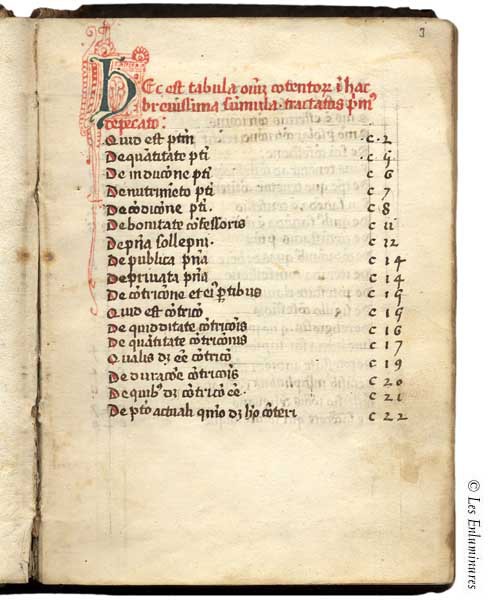 3
HEc est tabula oīuȝ cōtentoꝝ ī hac
breuissima sūmula: tractatus pͥmꝰ
de pecato:
Quid est pctm̄ c. 2
De quātitate pcti c. 5
De inductōne pcti c 6
De nutrimēto pcti c 7
De cōdicōne pcti. c 8
De bonitate cōfessoris c 11
De pn̄a sollepni. c 12
De publica pn̄a c 14
De priuata pn̄a c 14
De cōtricōne et eiꝰ ptibus c 15
Quid est cōtricō c 15
De quidditate cōtricōis c 16
De quātitate cōtricōnis c 17
Qualis dꝫ eē cōtricō c 19
De duracōe cōtricōis c 20
De quibꝰ dꝫ cōtricō eē. c 21
De pctō actuali quō dꝫ hō cōteri c 22
© Les Enluminures